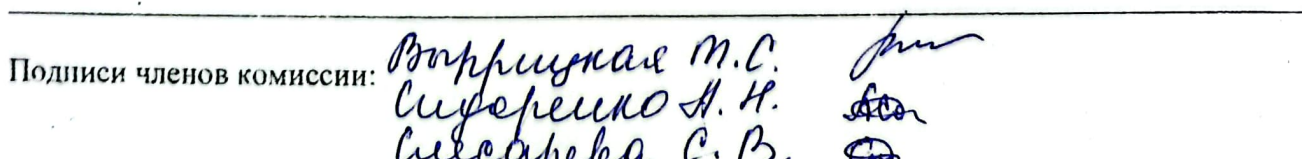 Подписи членов комиссии: М.С.
Сидоренко А.Н.
Слесарева С.В.